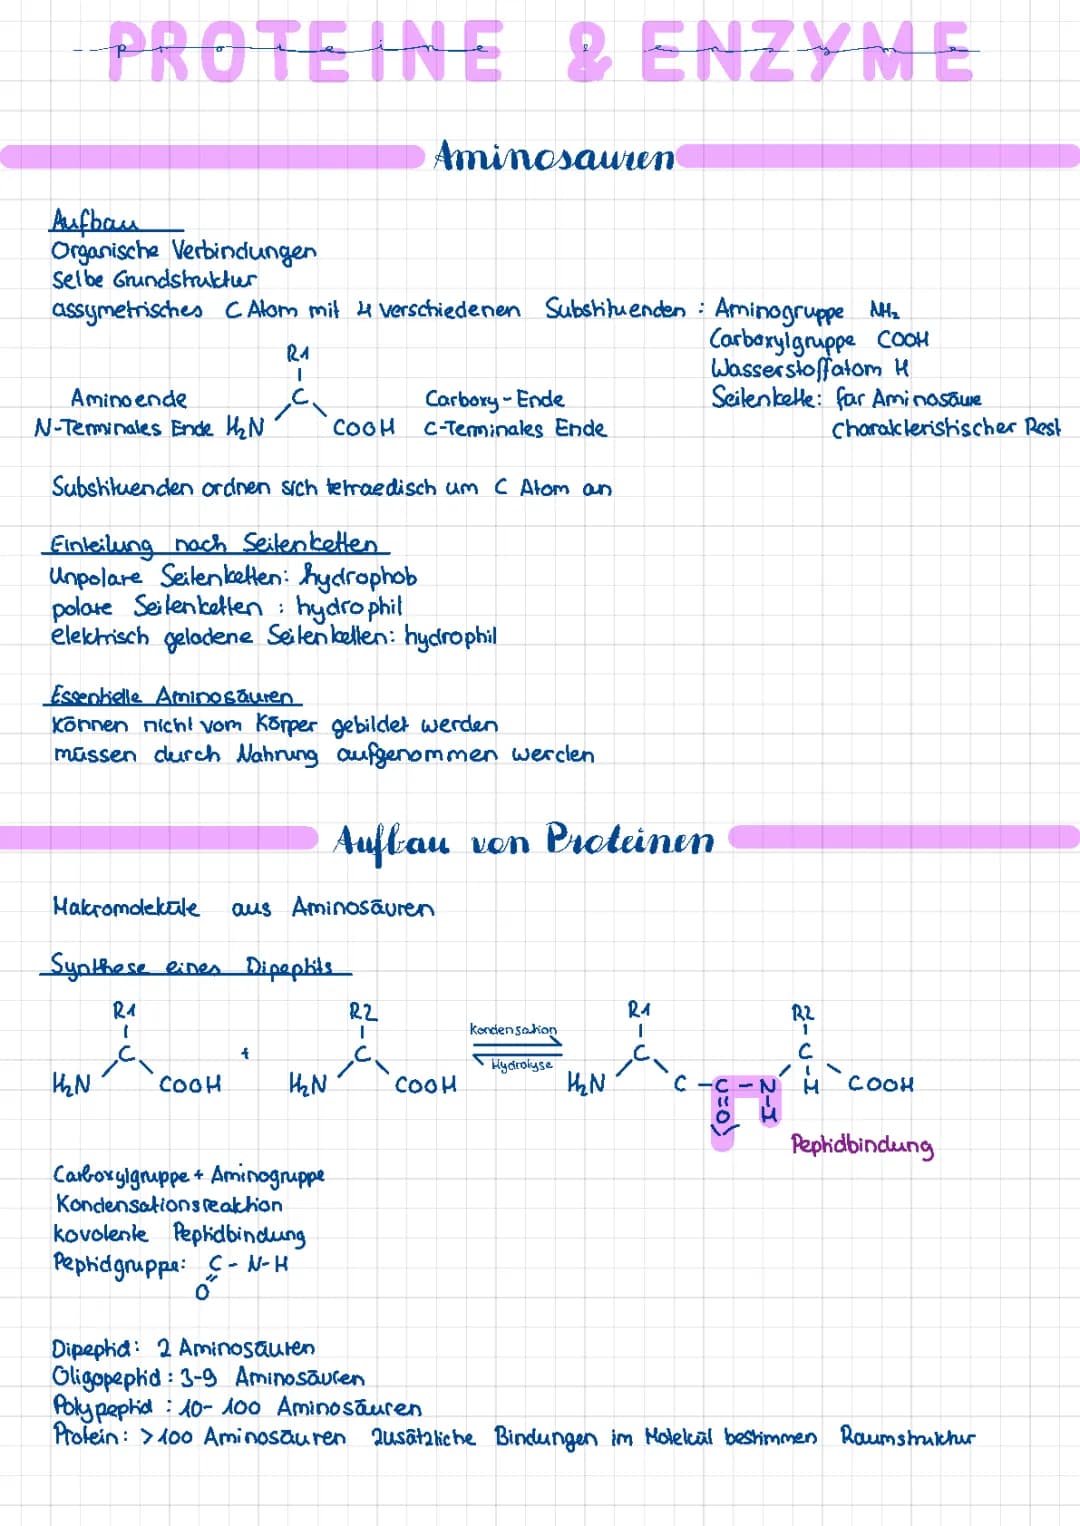 PROTEINE & ENZYME
proteine & enzyme
Aminosäuren
Aufbau
Organische Verbindungen
Selbe Grundstruktur
assymetrisches C Atom mit 4 verschiedenen Substituenden : Aminogruppe NH₂
Carboxylgruppe COOH
Wasserstoffatom H
Seitenkette: für Aminosäure
charakteristischer Rest
R1
C
Aminoende
Carboxy-Ende
N-Terminales Ende H₂N COOH C-Terminales Ende
Substituenden ordnen sich tetraedisch um C Atom an
Einteilung nach Seitenketten
Unpolare Seitenketten: hydrophob
polare Seitenketten : hydrophil
elektrisch geladene Seitenketten: hydrophil
Essentielle Aminosäuren
können nicht vom Körper gebildet werden
müssen durch Nahrung aufgenommen werden
Aufbau von Proteinen
Makromoleküle aus Aminosäuren
Synthese eines Dipeptits
R1 R2 R1 R2
Kondensation
C + C C C
Hydrolyse
H₂N COOH H₂N COOH H₂N C - C - N H COOH
O H
Peptidbindung
Carboxylgruppe + Aminogruppe
Kondensationsreaktion
kovalente Peptidbindung
Peptidgruppe: C - N-H
O
Dipeptid: 2 Aminosäuren
Oligopeptid : 3-9 Aminosäuren
Polypeptid : 10-100 Aminosäuren
Protein: >100 Aminosäuren zusätzliche Bindungen im Molekül bestimmen Raumstruktur